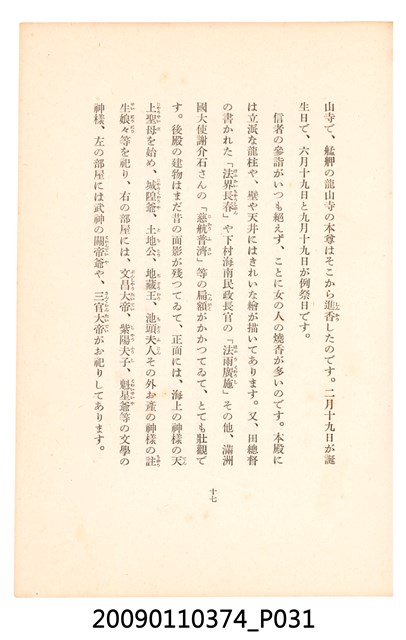 山寺で、艋舺の龍山寺の本尊はそこから進香したのです。二月十九日が誕
生日で、六月十九日と九月十九日が例祭日です。
信者の參詣がいつも絕えず、ことに女の人の燒香が多いのです。本殿に
は立派な龍柱や、壁や天井にはきれいな繪が描いてあります。又、田總督
の書かれた「法界長春」や下村海南民政長官の「法雨廣施」その他、滿洲
國大使謝介石さんの「慈航普濟」等の扁額がかかつてゐて、とても壯觀で
す。後殿の建物はまだ昔の面影が殘つてゐて、正面には、海上の神樣の天
上聖母を始め、城隍爺、土地公、地藏王、池頭夫人その外お產の神樣の註
生娘々等を祀り、右の部屋には、文昌大帝、紫陽夫子、魁星爺等の文學の
神樣、左の部屋には武神の關帝爺や、三官大帝がお祀りしてあります。
十七
20090110374_P031